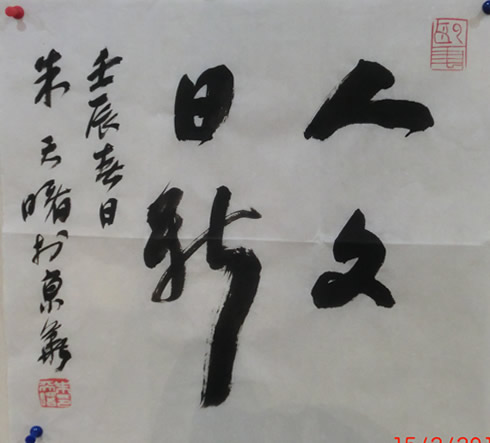 人文
日新
壬辰春日
朱天曙於京華
15/2/201